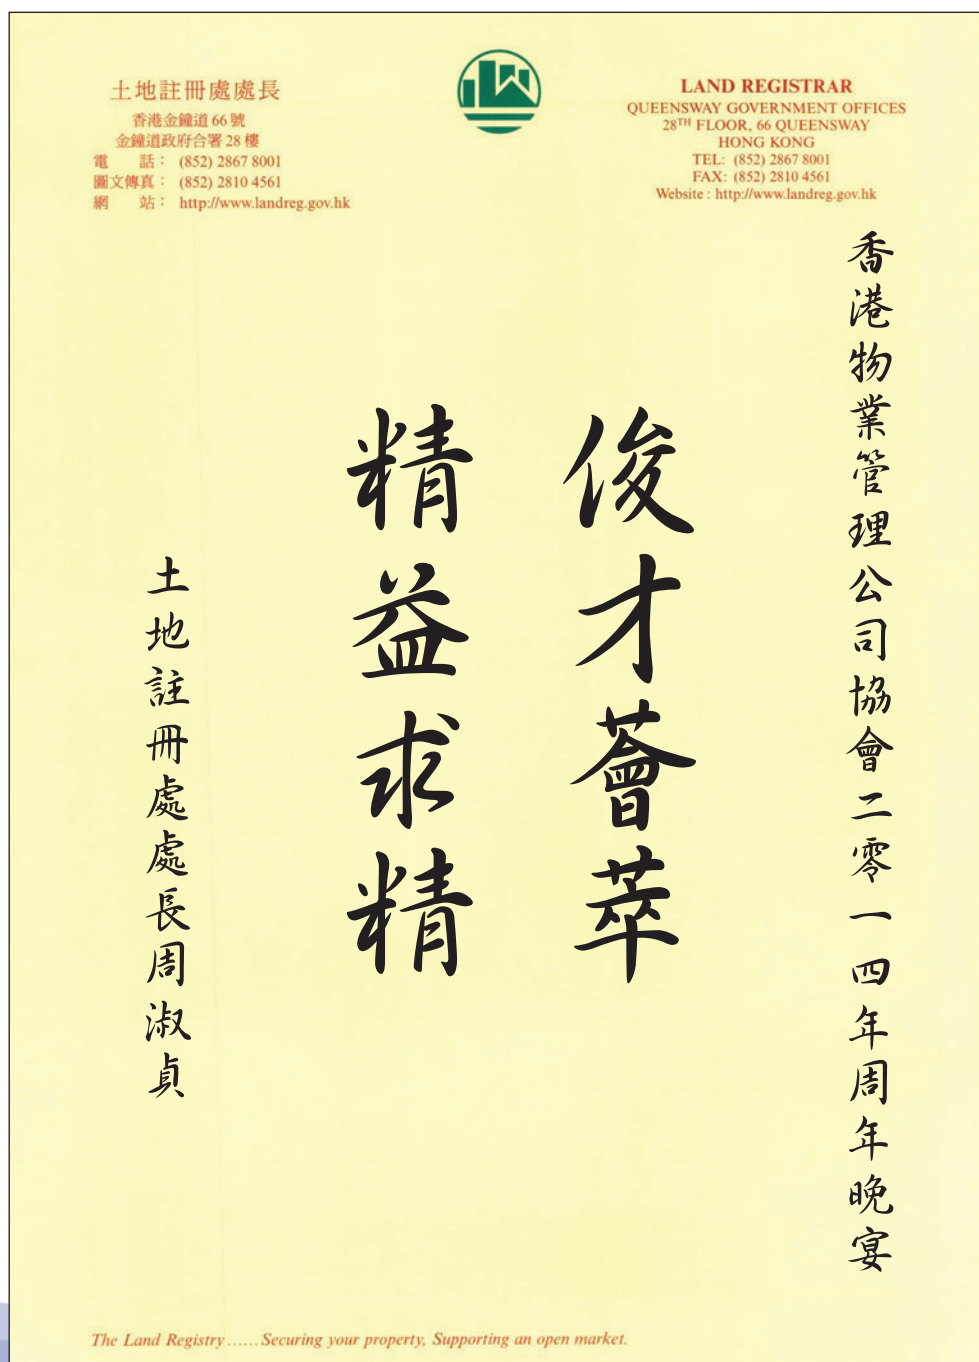 土地註冊處處長
香港金鐘道 66 號
金鐘道政府合署 28 樓
電 話： (852) 2867 8001
圖文傳真： (852) 2810 4561
網 站： http://www.landreg.gov.hk
LAND REGISTRAR
QUEENSWAY GOVERNMENT OFFICES
28TH FLOOR, 66 QUEENSWAY
HONG KONG
TEL: (852) 2867 8001
FAX: (852) 2810 4561
Website : http://www.landreg.gov.hk
香港物業管理公司協會二零一四年周年晚宴
俊才薈萃
精益求精
土地註冊處處長周淑貞
The Land Registry ...... Securing your property, Supporting an open market.